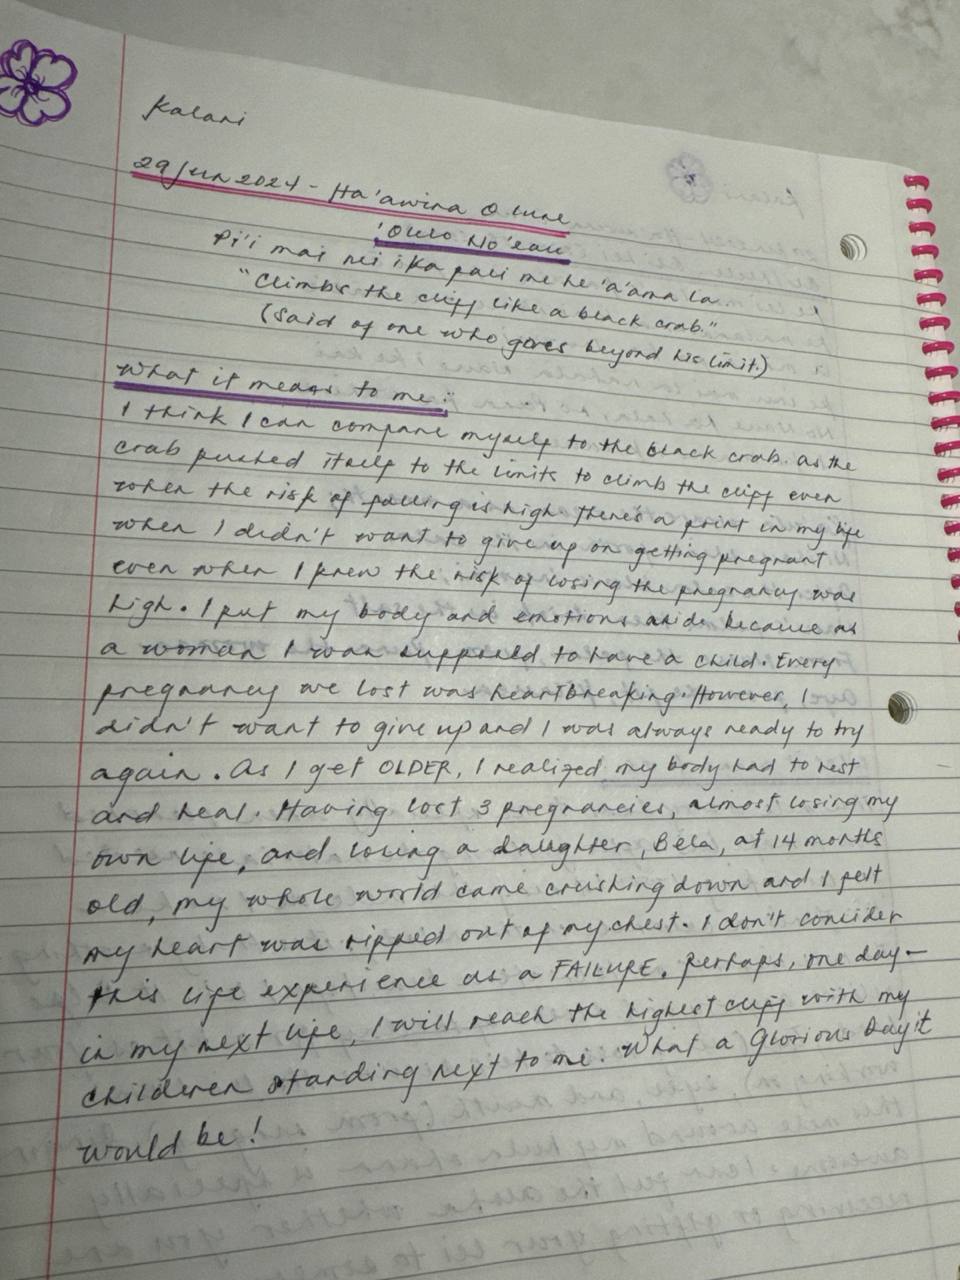 Kalani
29 Jun 2024 - Ha'awina O Iune
'Ōlelo No'eau
Pi'i mai nei i ka pali me he 'a'ama la
"Climbs the cliff like a black crab."
(Said of one who goes beyond his limit.)
What it means to me:
I think I can compare myself to the black crab. as the
crab pushed itself to the limits to climb the cliff even
when the risk of falling is high. There's a point in my life
when I didn't want to give up on getting pregnant
even when I knew the risk of losing the pregnancy was
high. I put my body and emotions aside because as
a woman I was supposed to have a child. Every
pregnancy we lost was heartbreaking. However, I
didn't want to give up and I was always ready to try
again. As I get OLDER, I realized my body had to rest
and heal. Having lost 3 pregnancies, almost losing my
own life, and losing a daughter, Bela, at 14 months
old, my whole world came crushing down and I felt
my heart was ripped out of my chest. I don't consider
this life experience as a FAILURE. Perhaps, one day—
in my next life, I will reach the highest cliff with my
children standing next to me. What a Glorious Day it
would be!